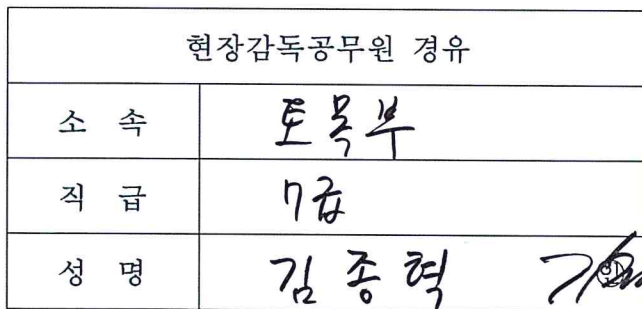 현장감독공무원 경유
소 속 토목부
직 급 7급
성 명 김종혁 ㊞